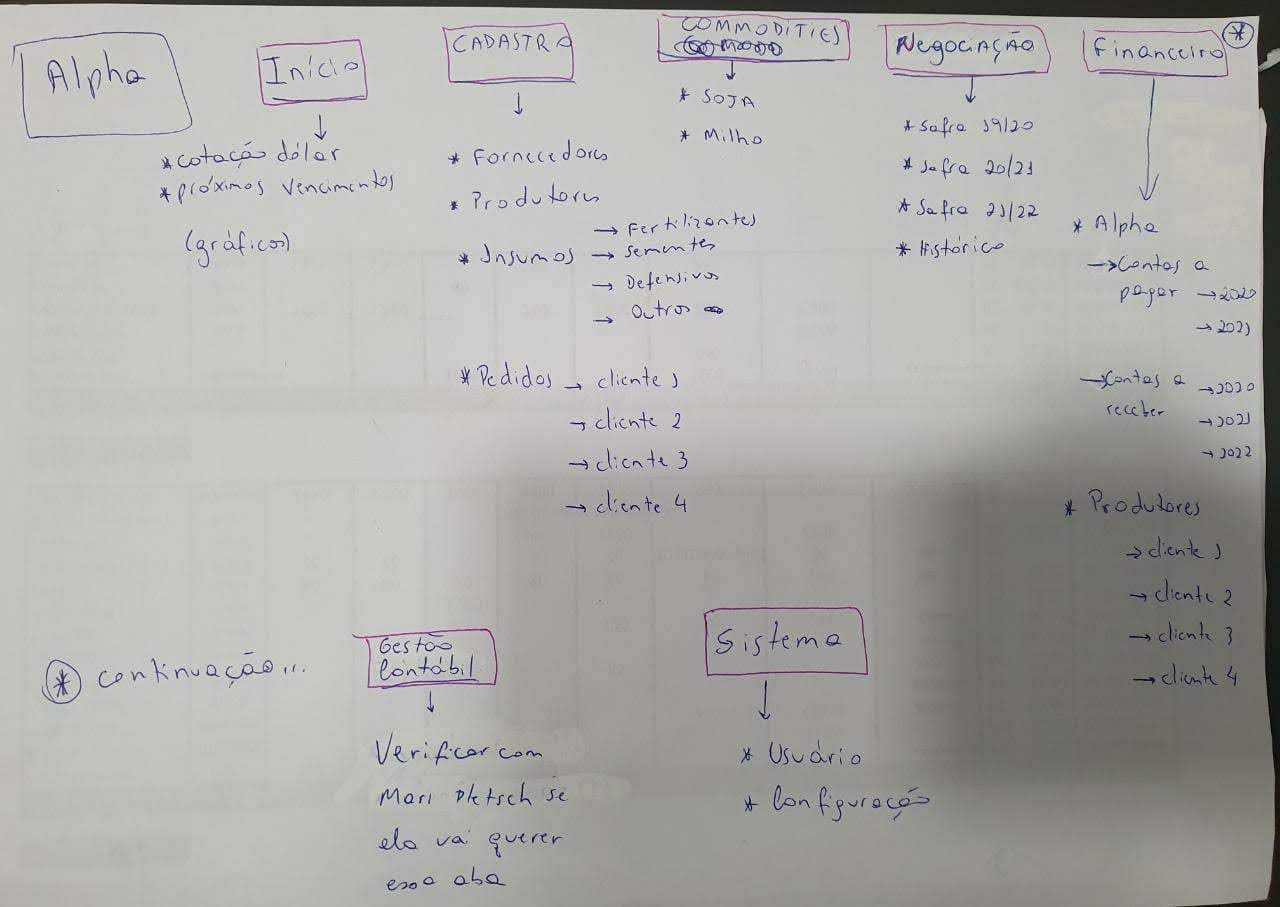 Alpha
Início
* cotação dólar
* próximos vencimentos
(gráficos)
CADASTRO
* Fornecedores
* Produtores
* Insumos
→ Fertilizantes
→ Sementes
→ Defensivos
→ Outros
* Pedidos → cliente 1
→ cliente 2
→ cliente 3
→ cliente 4
COMMODITIES
* SOJA
* Milho
Negociação
* Safra 19/20
* Safra 20/21
* Safra 21/22
* Histórico
Financeiro
*
* Alpha
→ Contas a
pagar → 2020
→ 2021
→ Contas a → 2020
receber → 2021
→ 2022
* Produtores
→ cliente 1
→ cliente 2
→ cliente 3
→ cliente 4
* continuação...
Gestão
Contábil
Verificar com
Mari se
ela vai querer
essa aba
Sistema
* Usuário
* Configuração